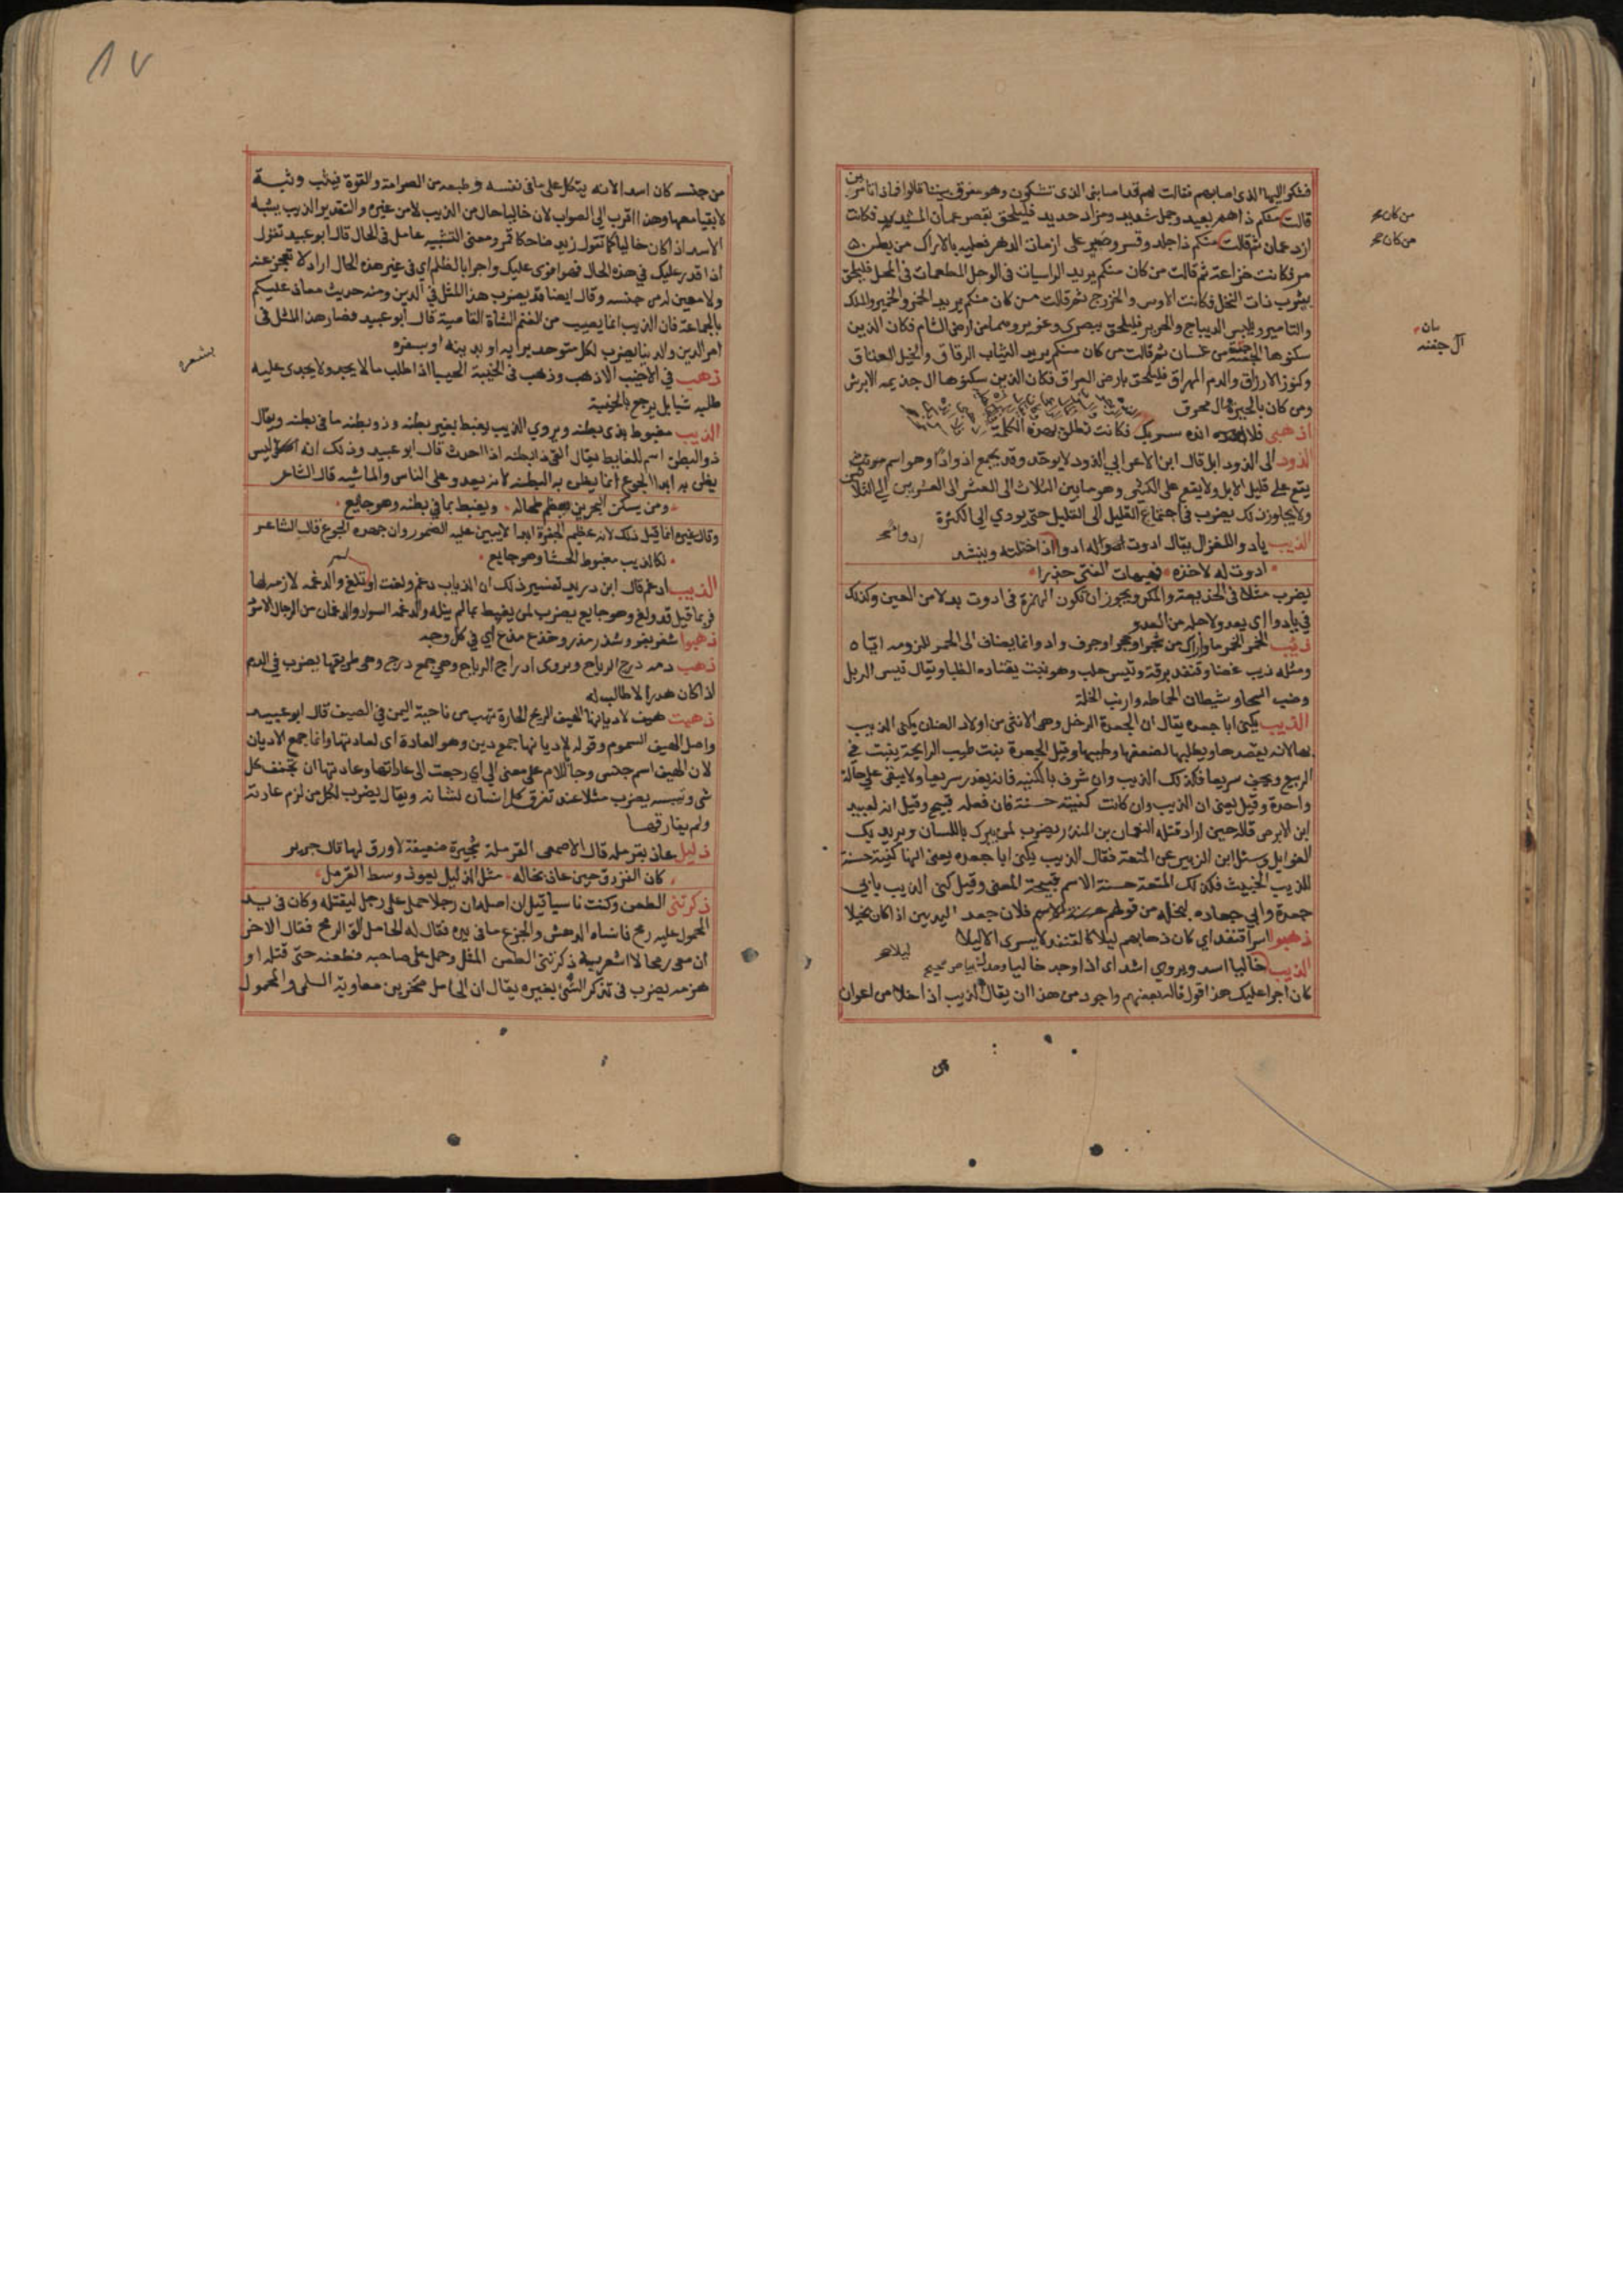 فشكوا اليها الذى اصابهم فقالت لهم قد اصابنى الذى تشكون وهو مفرق بيننا قالوا فماذا تامرين
قالت منكم ذا هم بعيد وجمل شديد ومزاد حديد فليلحق بقصر عمان المشيد فكانت
ازد عمان ثم قالت منكم ذا جلد وقسر وصبر على ازمات الدهر فعليه بالاراك من بطن
مر فكانت خزاعة ثم قالت من كان منكم يريد الراسيات فى الوحل المطعمات فى المحل فليلحق
بيثرب ذات النخل فكانت الاوس والخزرج ثم قالت من كان منكم يريد الخمر والخمير والملك
والتامير ويلبس الديباج والحرير فليلحق ببصرى وغوير وهما من ارض الشام فكان الذين
سكنوها من غسان ثم قالت من كان منكم يريد الثياب الرقاق والخيل العتاق
وكنوز الارزاق والدم المهراق فليلحق بارض العراق فكان الذين سكنوها ال جذيمه الابرش
ومن كان بالحيرة وال محرق
اذهبى فلا انده سربك فكانت تطلق بهذه الكلمة
الذود الى الذود ابل قال ابن الاعرابى الذود لا يوحد وقد يجمع اذوادا وهو اسم مونث
يقع على قليل الابل ولا يقع على الكثير وهو ما بين الثلاث الى العشر الى العشرين الى الثلاثين
ولا يجاوز ذلك يضرب فى اجتماع القليل الى القليل حتى يودي الى الكثرة
الذيب يادو للغزال يقال ادوت له ادوا اذا ختلته وينشد
ادوت له لاخذه فهيهات الفتى حذرا
يضرب مثلا فى الخديعة والمكر ويجوز ان تكون الهمزة فى ادوت بدلا من العين وكذلك
فى يادوا اى يعدو لاجله من العدو
ذيب الخمر الخمر ما واراك من شجر او حجر او جرف واد وانما يضاف الى الخمر للزومه اياه
ومثله ذيب غضا وقنفذ برقة وتيس حلب وهو نبت يعتاده الظبا ويقال تيس الربل
وضب السحا وشيطان الحماطه وارنب الخلة
الذيب يكنى ابا جعده يقال ان الجعدة الرخل وهى الانثى من اولاد الضان يكنى الذيب
بها لانه يقصدها ويطلبها لضعفها وطيبها وقيل الجعدة نبت طيب الرايحة ينبت فى
الربيع ويجف سريعا فكذلك الذيب وان شرف بالكنية فانه يغدر سريعا ولا يبقى على حالة
واحدة وقيل يعنى ان الذيب وان كانت كنيته حسنة فان فعله قبيح وقيل انه لعبيد
ابن الابرص قاله حين اراد قتله النعمان بن المنذر يضرب لمن يبرك باللسان ويريد بك
الغوايل وسئل ابن الزبير عن المتعة فقال الذيب يكنى ابا جعده يعنى انها كنية حسنة
للذيب الخبيث فكذلك المتعة حسنة الاسم قبيحة المعنى وقيل كنى الذيب بابى
جعدة وابى جعاده لبخله من قولهم فلان جعد اليدين اذا كان بخيلا
ذهبوا اسرا قنفذ اي كان ذهابهم ليلا كالقنفذ لا يسرى الا ليلا
الذيب خاليا اسد ويروى اشد اى اذا وجد خاليا
كان اجرا عليك هذا قول قاله بعضهم واجود من هذا ان يقال الذيب اذا خلا من اعوان
من كان
من كان
آل جفنه
من جنسه كان اسدا لانه يتكل على ما فى نفسه وطبعه من الصرامة والقوة فيثب وثبة
لا بقيا معها وهذا اقرب الى الصواب لان خاليا حال من الذيب لا من غيره والتقدير الذيب يشبه
الاسد اذا كان خاليا كما تقول زيد ضاحكا قمر ومعنى التشبيه عامل فى الحال قال ابو عبيد تقول
اذا قدر عليك فى هذه الحال فهو اقوى عليك واجرا بالظلم اى فى غير هذه الحال اراد لا تعجز عنه
ولا معين له من جنسه وقال ايضا قد يضرب هذا المثل فى الدين ومنه حديث معاذ عليكم
بالجماعة فان الذيب انما يصيب من الغنم الشاة القاصية قال ابو عبيد فصار هذا المثل فى
امر الدين والدنيا يضرب لكل متوحد برايه او بدينه او بسفره
ذهب فى الاخيب الاذهب وذهب فى الخيبة الخيبا اذا طلب ما لا يجد ولا يجدى عليه
طلبه شيا بل يرجع بالخيبة
الذيب مغبوط بذى بطنه ويروي الذيب يغبط بغير بطنه وذو بطنه ما فى بطنه ويقال
ذو البطن اسم للغايط يقال القى ذا بطنه اذا احدث قال ابو عبيد وذلك انه ليس
يظن به ابدا الجوع انما يظن به البطنه لانه يعدو على الناس والماشيه قال الشاعر
ومن يسكن البحرين يعظم طحاله ويغبط بما فى بطنه وهو جايع
وقال غيره انما قيل ذلك لانه عظيم الجفرة ابدا لا يبين عليه الضمور وان جهده الجوع قال الشاعر
لكالذيب مغبوط الحشا وهو جايع
الذيب ادغم قال ابن دريد تفسير ذلك ان الذياب دغم ولغت او لم تلغ والدغمه لازمه لها
فربما قيل قد ولغ وهو جايع يضرب لمن يغبط بما لم ينله والدغمه السواد والدغمان من الرجال الاسود
ذهبوا شغر بغر وشذر مذر وخذع مذع اي فى كل وجه
ذهب دمه درج الرياح ويروى ادراج الرياح وهى جمع درج وهى طريقها يضرب فى الدم
اذا كان هدرا لا طالب له
ذهبت هيف لاديانها الهيف الريح الحارة تهب من ناحية اليمن فى الصيف قال ابو عبيد
واصل الهيف السموم وقوله لاديانها جمع دين وهو العادة اى لعادتها وانما جمع الاديان
لان الهيف اسم جنس وجا اللام على معنى الى اي رجعت الى عاداتها وعادتها ان تجفف كل
شى وتيبسه يضرب مثلا عند تفرق كل انسان لشانه ويقال يضرب لكل من لزم عادته
ولم يفارقها
ذليل عاذ بقرمله قال الاصمعى القرملة شجيرة ضعيفة لا ورق لها قال جرير
كان الفرزدق حين عاذ بخاله مثل الذليل يعوذ وسط القرمل
ذكرتنى الطعن وكنت ناسيا قيل ان اصله ان رجلا حمل على رجل ليقتله وكان فى يد
المحمول عليه رمح فانساه الدهش والجزع ما فى يده فقال له الحامل الق الرمح فقال الاخر
ان معى رمحا لا اشعر به ذكرتنى الطعن المثل وحمل على صاحبه فطعنه حتى قتله او
هزمه يضرب فى تذكر الشى بغيره يقال ان الحامل صخر بن معاوية السلمى والمحمول